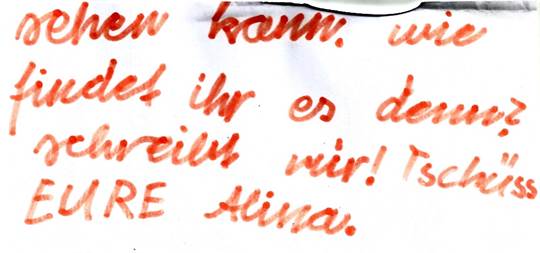 sehen kann. wie
findet ihr es denn?
schreibt mir! Tschüss
EURE Alina.